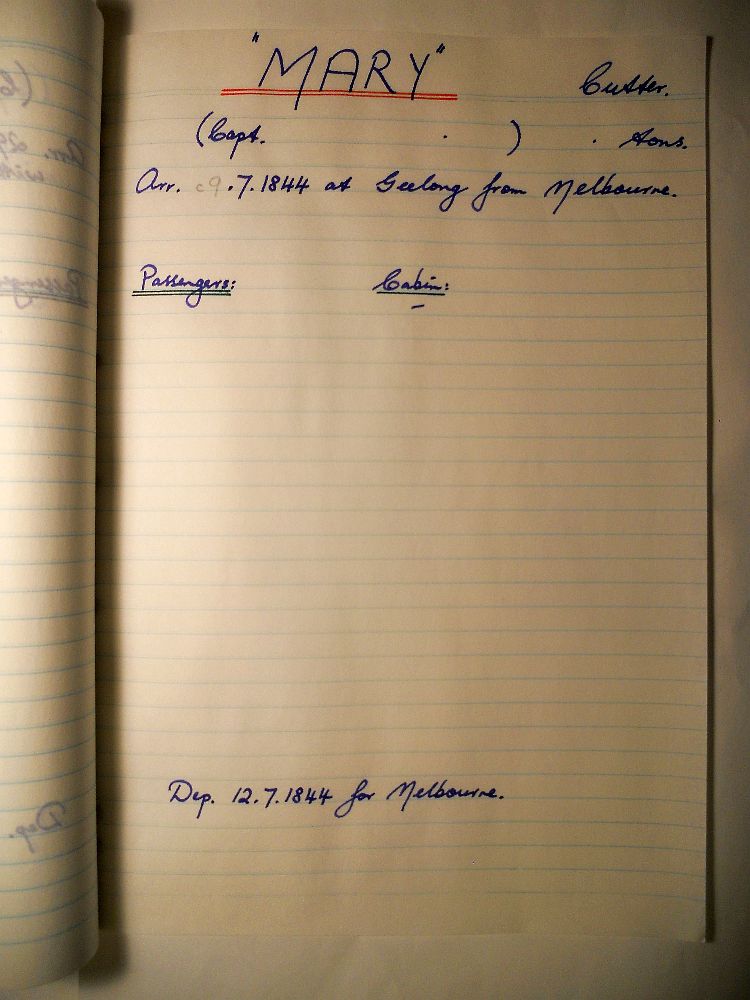 "MARY" Cutter.
(Capt. . ) . tons.
Arr. c9.7.1844 at Geelong from Melbourne.
Passengers: Cabin:
–
Dep. 12.7.1844 for Melbourne.